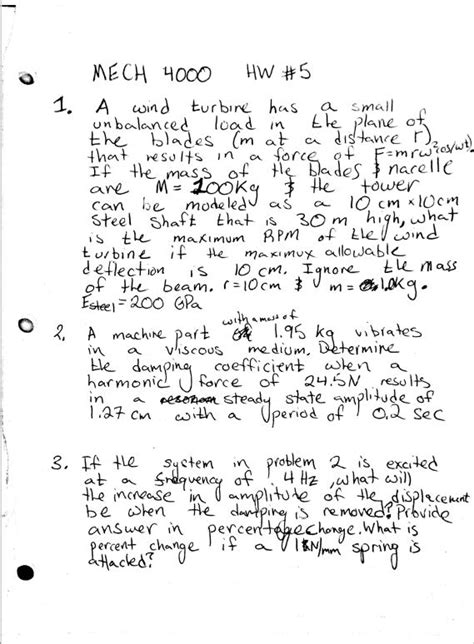 MECH 4000 HW #5
1. A wind turbine has a small
unbalanced load in the plane of
the blades (m at a distance r),
that results in a force of F=mrω²cos(ωt).
If the mass of the blades & nacelle
are M = 200Kg & the tower
can be modeled as a 10 cm x 10cm
Steel shaft that is 30 m high, what
is the maximum RPM of the wind
turbine if the maximux allowable
deflection is 10 cm. Ignore the mass
of the beam. r=10cm & m = 0.1Kg.
Esteel = 200 GPa
2. A machine part with a mass of 1.95 kg vibrates
in a viscous medium. Determine
the damping coefficient when a
harmonic force of 24.5N results
in a steady state amplitude of
1.27 cm with a period of 0.2 sec
3. If the system in problem 2 is excited
at a frequency of 4 Hz, what will
the increase in amplitude of the displacement
be when the damping is removed? Provide
answer in percentage change. What is
percent change if a 1KN/mm spring is
attacked?